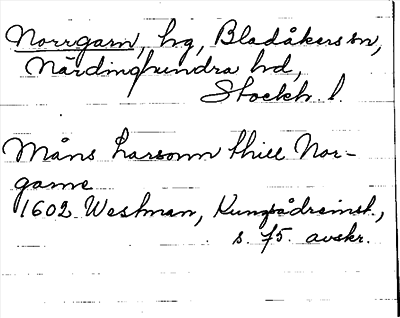 Norrgarn, hg, Bladåkers sn,
Närdinghundra hd,
Stockh. l.
Måns Larsonn thill Nor-
game
1602 Westman, Kungsådreinst.,
s. 75. avskr.